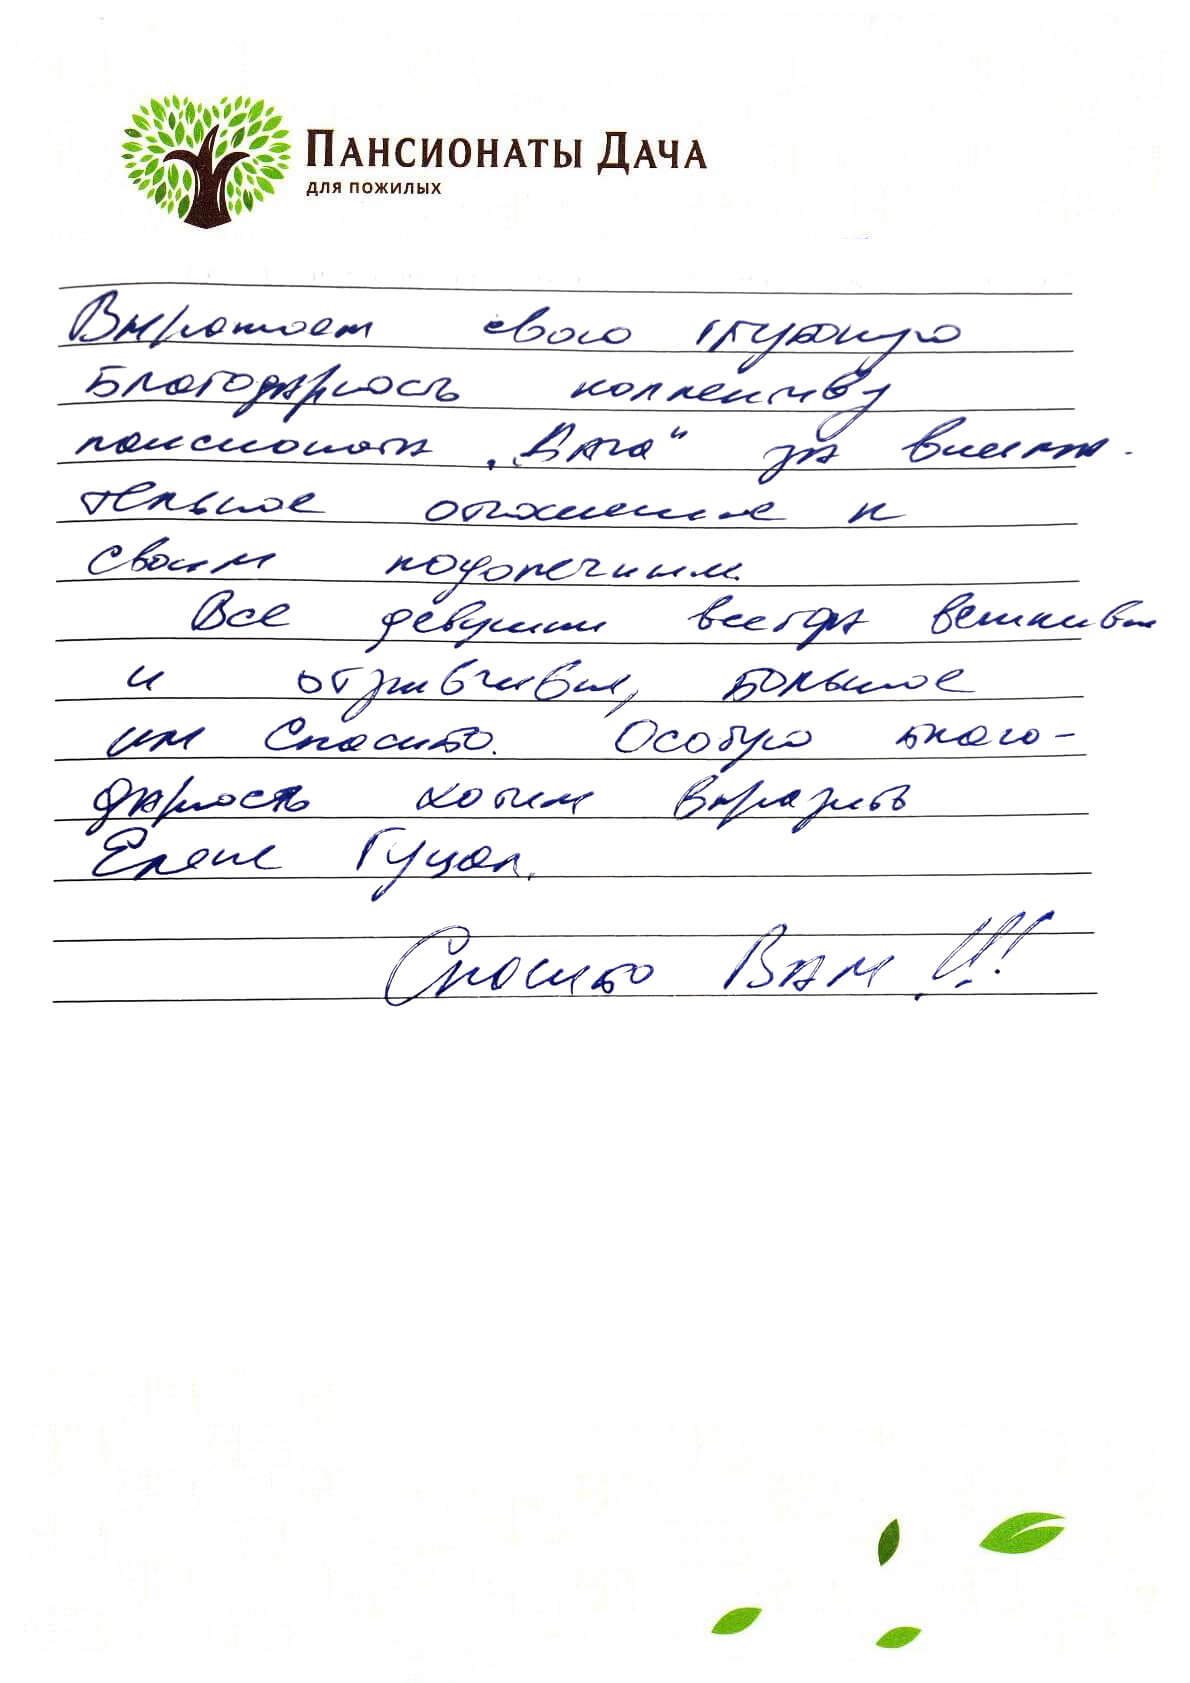 ПАНСИОНАТЫ ДАЧА
ДЛЯ ПОЖИЛЫХ
Выражаем свою глубокую
благодарность коллективу
пансионата „Дача“ за внима-
тельное отношение к
своим подопечным.
Все девушки всегда вежливы
и отзывчивы, большое
им спасибо. Особую благо-
дарность хотим выразить
Елене Гуцал.
Спасибо Вам!!!